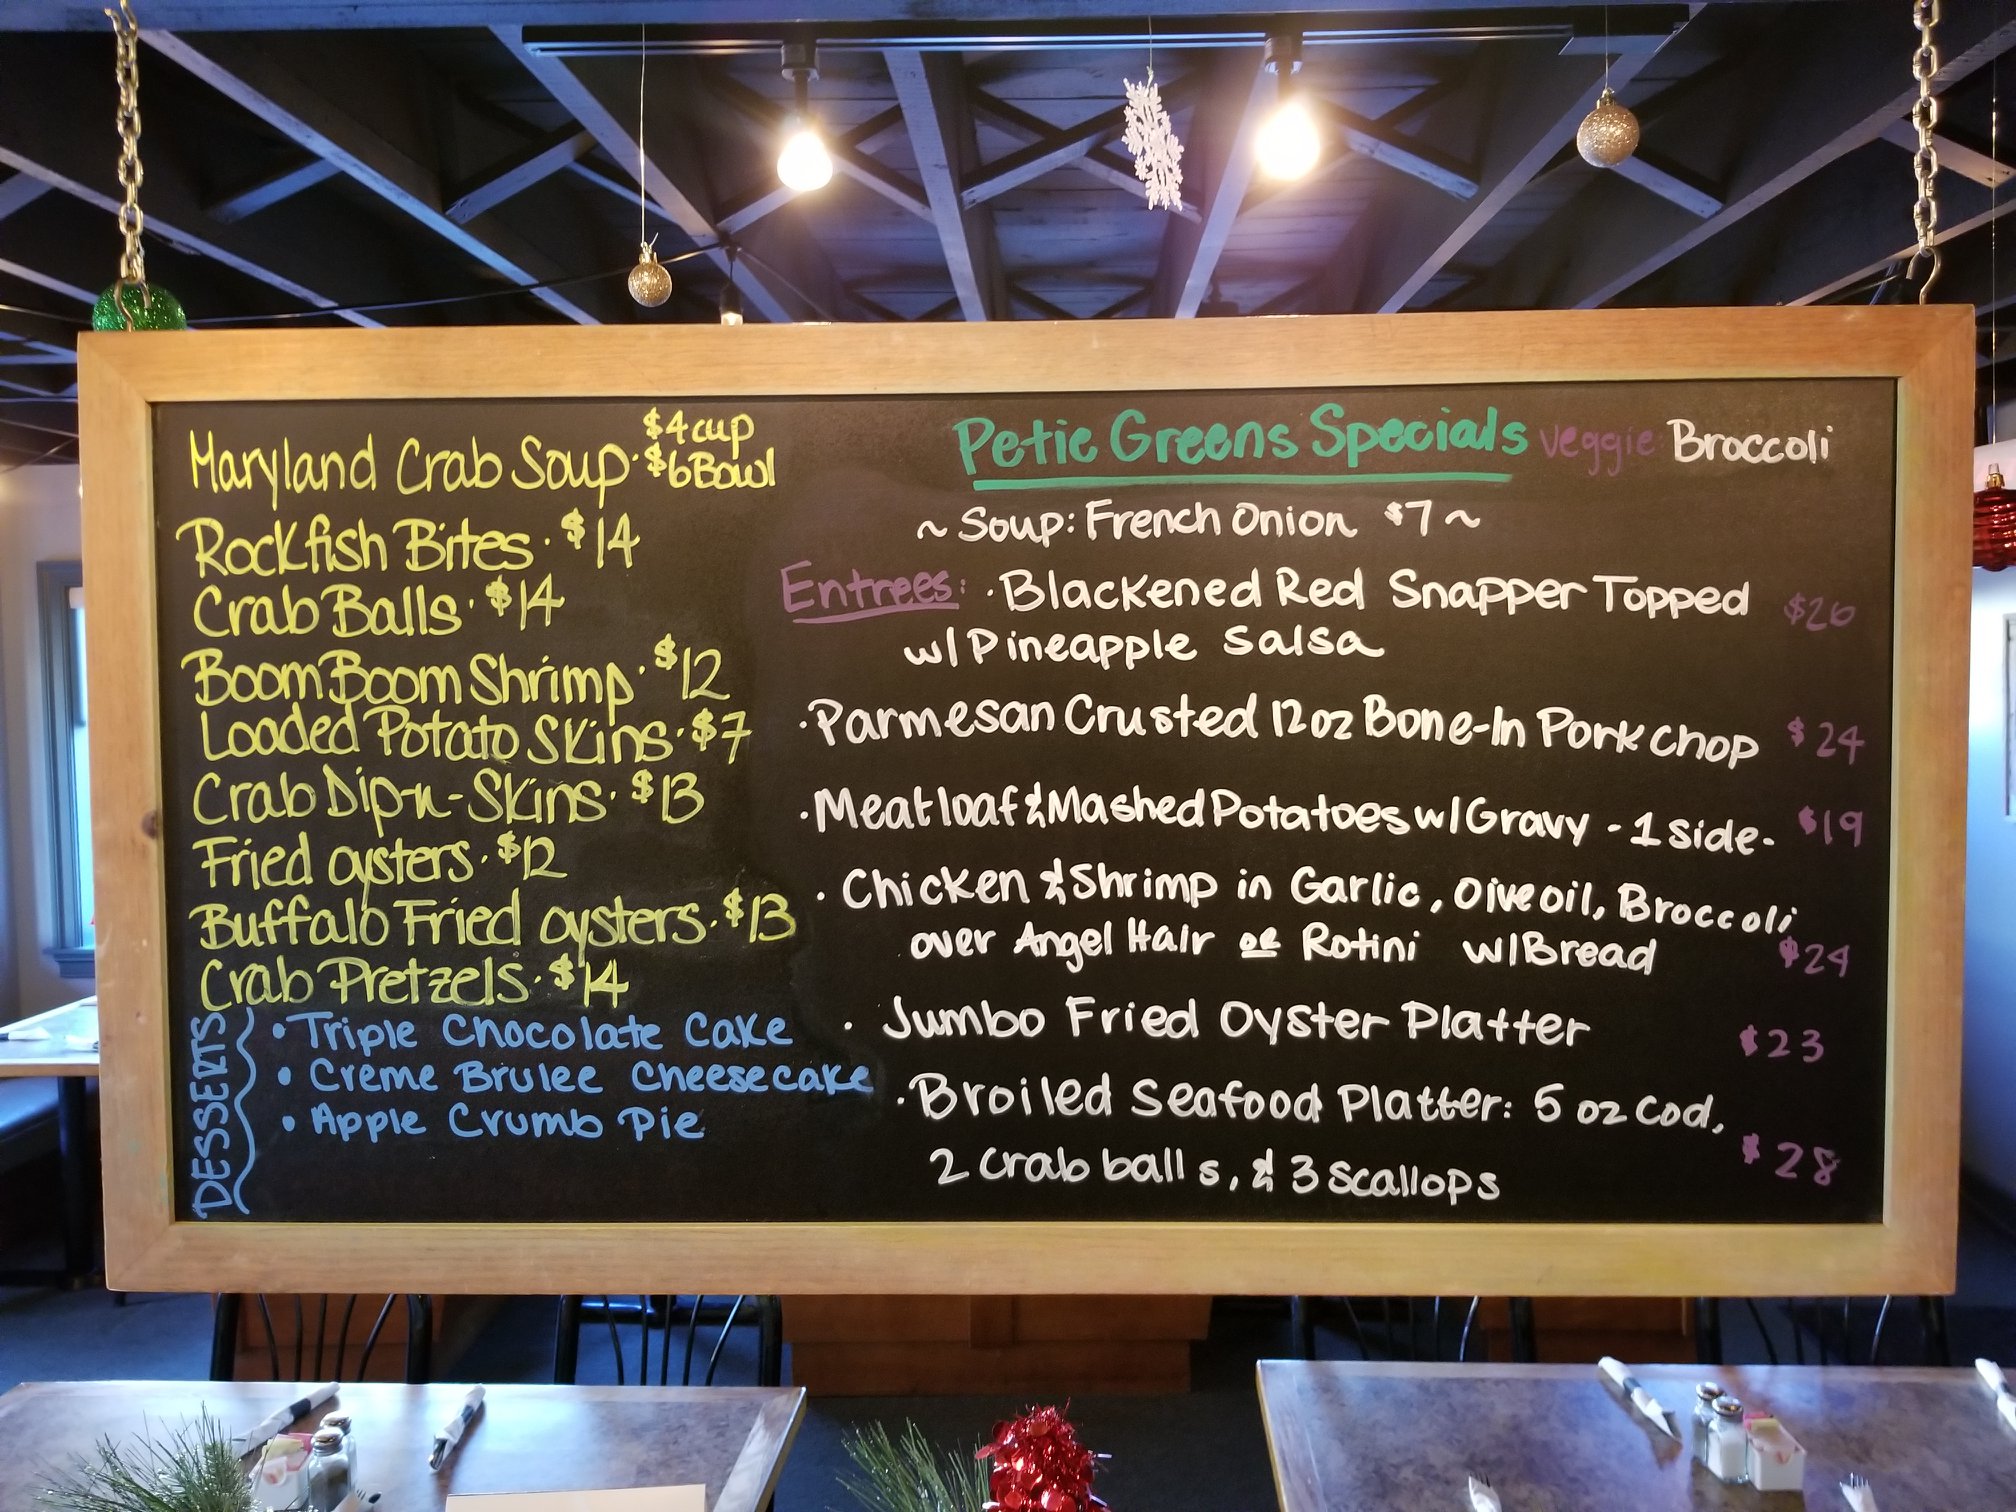 Maryland Crab Soup · $4 cup
$6 Bowl
Rockfish Bites · $14
Crab Balls · $14
Boom Boom Shrimp · $12
Loaded Potato Skins · $7
Crab Dip-n-Skins · $13
Fried oysters · $12
Buffalo Fried oysters · $13
Crab Pretzels · $14
DESSERTS
• Triple Chocolate Cake
• Creme Brulee Cheesecake
• Apple Crumb Pie
Petie Greens Specials veggie: Broccoli
~ Soup: French Onion $7 ~
Entrees: · Blackened Red Snapper Topped $26
w/ Pineapple Salsa
· Parmesan Crusted 12oz Bone-In Pork Chop $24
· Meatloaf & Mashed Potatoes w/ Gravy - 1 side - $19
· Chicken & Shrimp in Garlic, Olveoil, Broccoli
over Angel Hair or Rotini w/ Bread $24
· Jumbo Fried Oyster Platter $23
· Broiled Seafood Platter: 5 oz Cod,
2 crab balls, & 3 scallops $28